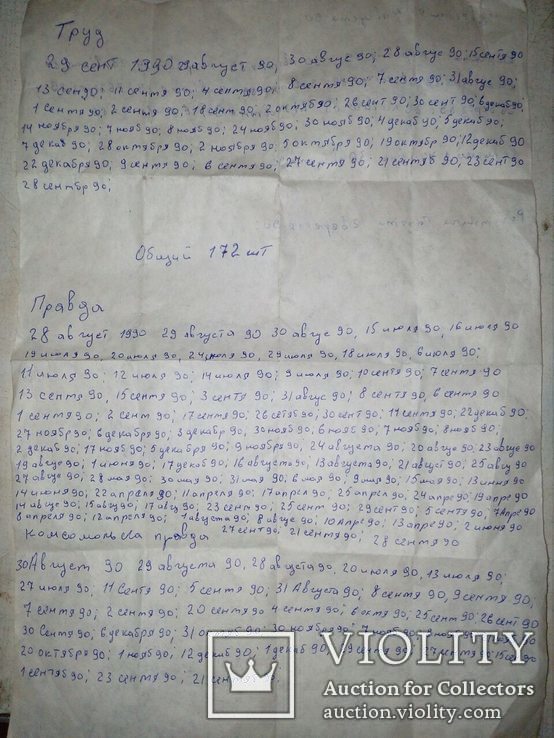 Труд
29 сент 1990 29 август 90, 30 август 90; 28 август 90; 15 сент 90
13 сен 90; 11 сентя 90; 4 сентя 90; 8 сентя 90; 7 сентя 90; 31 август 90;
1 сентя 90; 2 сентя 90; 18 сент 90; 2 октяб 90; 26 сент 90; 30 сент 90; 6 декаб 90;
14 ноября 90; 7 нояб 90; 8 нояб 90; 24 нояб 90; 30 нояб 90; 4 декаб 90; 5 декаб 90;
7 декаб 90; 28 октября 90; 2 ноября 90; 5 октября 90; 19 октябр 90; 12 декаб 90
22 декабря 90; 9 сентя 90; 6 сентя 90; 27 сентя 90; 21 сентяб 90; 23 сент 90
28 сентбр 90;
Общий 172 шт
Правда
28 август 1990 29 августа 90 30 авгус 90, 15 июля 90, 16 июля 90
19 июля 90, 20 июля 90, 24 июля 90, 29 июля 90, 18 июля 90, 6 июля 90;
11 июля 90; 12 июля 90; 14 июля 90; 9 июля 90; 10 сентя 90; 7 сентя 90
13 сентя 90, 15 сентя 90; 3 сентя 90; 31 авгус 90; 8 сентя 90, 6 сентя 90
1 сентя 90; 2 сент 90; 17 сентя 90; 26 сетяб 90; 30 сент 90; 11 сентя 90; 22 декаб 90
27 ноябр 90; 6 декабря 90; 3 декабр 90, 30 нояб 90, 6 нояб 90; 7 нояб 90, 8 нояб 90;
2 декаб 90; 17 нояб 90; 5 декабря 90; 9 ноября 90, 24 августа 90; 20 авгус 90; 23 август 90
19 август 90; 1 июня 90; 17 декаб 90, 16 августа 90, 13 августа 90, 21 август 90; 25 август 90
27 август 90; 28 мая 90; 30 мая 90; 31 мая 90, 6 мая 90; 9 мая 90; 15 мая 90; 13 июня 90
14 июня 90; 22 апреля 90; 11 апреля 90; 17 апрел 90; 25 апрел 90; 24 апре 90; 19 апре 90
14 август 90; 15 авгус 90; 17 авгус 90, 23 сент 90; 25 сент 90; 29 сент 90; 5 сентя 90, 7 апре 90
8 апреля 90; 12 апреля 90; 7 августа 90; 8 август 90; 10 апре 90; 13 апре 90; 2 июня 90
27 сент 90; 21 сентя 90; 28 сентя 90
Комсомольска правда
30 Август 90 29 августа 90, 28 августа 90, 20 июля 90, 13 июля 90;
27 июля 90, 11 Сентя 90; 5 сентя 90; 31 Августа 90; 8 сентя 90, 9 сентя 90,
7 сентя 90; 2 сентя 90; 20 сентя 90 4 сентя 90; 6 октя 90; 25 сент 90; 26 сент 90
30 Сентя 90; 6 декабря 90; 31 октяб 90; 30 ноября 90; 7 нояб 90;
20 октября 90; 1 нояб 90; 12 декаб 90; 1 декаб 90; 29 сентя 90; 15 сен 90
1 сентя 90; 23 сентя 90; 21 сентя 90;
VIOLITY
Auction for Collectors
auction.violity.com